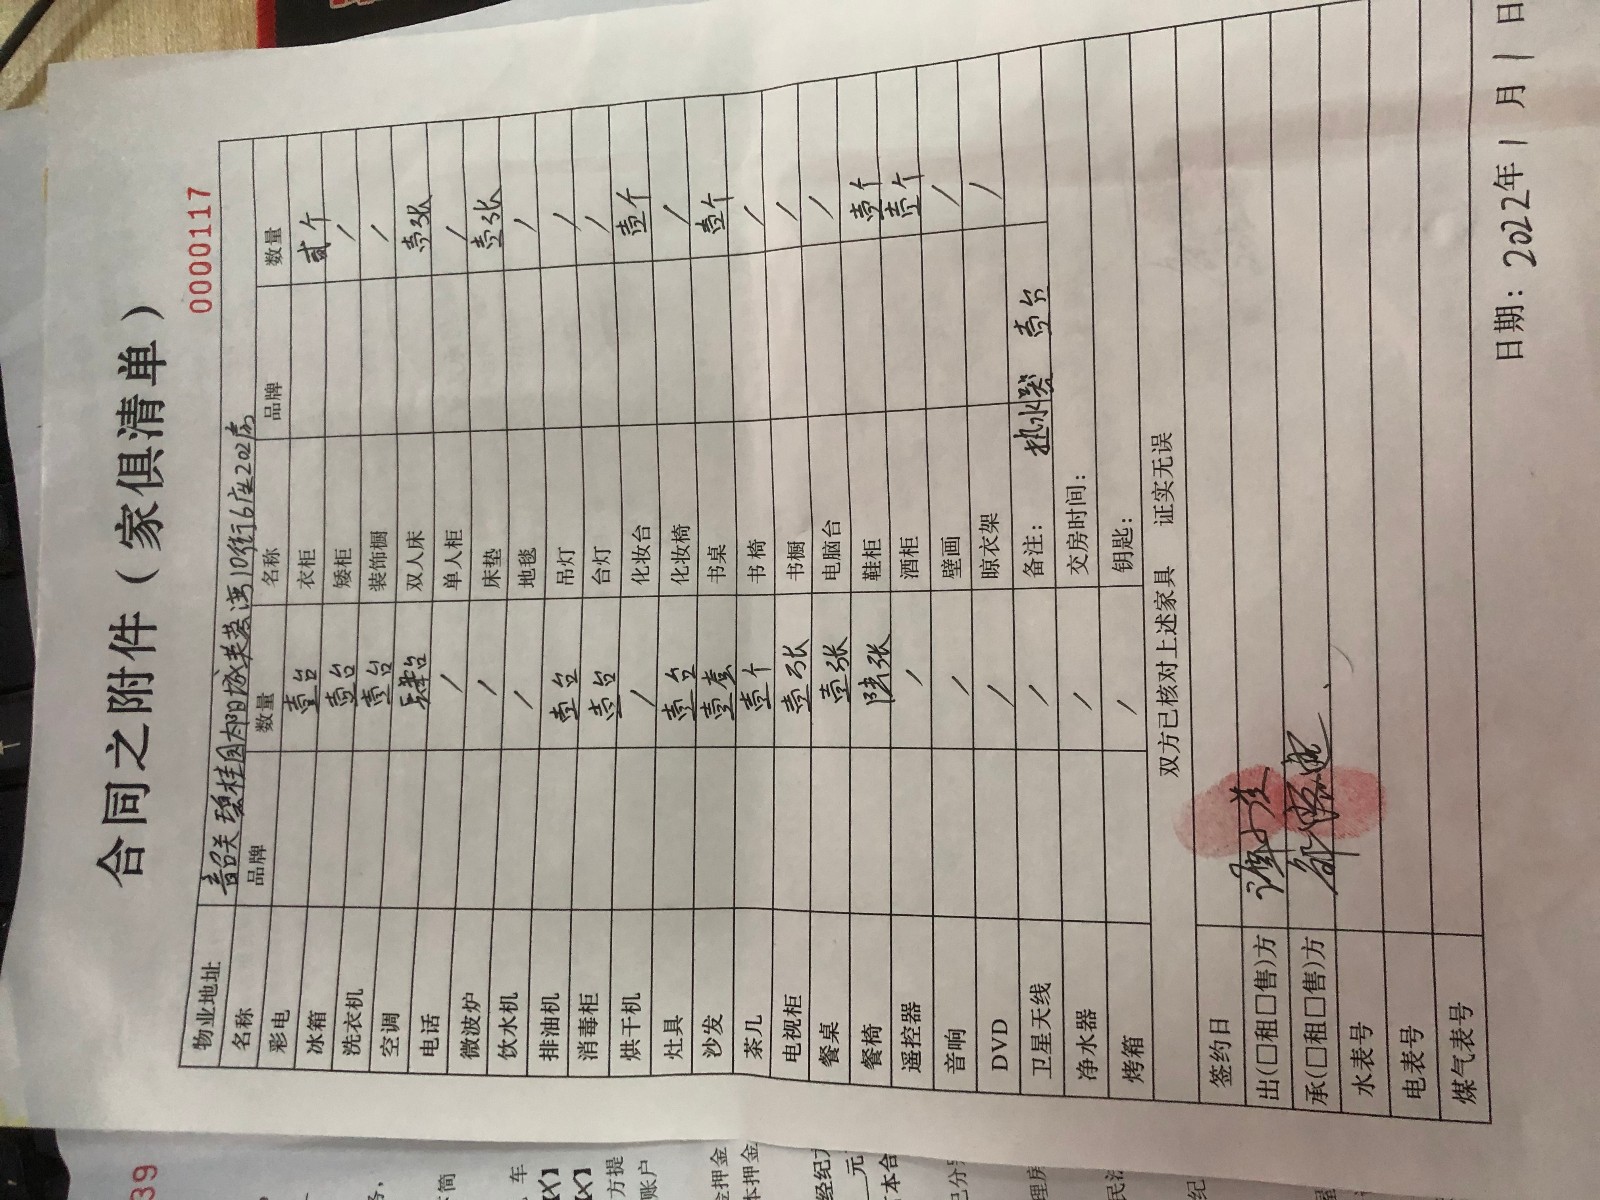 合同之附件（家俱清单）
0000117
物业地址 韶关碧桂园太阳城芙蓉湾10街6座202房
名称 品牌 数量 名称 品牌 数量
彩电 壹台 衣柜 贰个
冰箱 壹台 矮柜 /
洗衣机 壹台 装饰橱 /
空调 肆台 双人床 壹张
电话 / 单人柜 /
微波炉 / 床垫 壹张
饮水机 / 地毯 /
排油机 壹台 吊灯 /
消毒柜 壹台 台灯 /
烘干机 / 化妆台 壹个
灶具 壹台 化妆椅 /
沙发 壹套 书桌 壹个
茶几 壹个 书椅 /
电视柜 壹张 书橱 /
餐桌 壹张 电脑台 /
餐椅 陆张 鞋柜 壹个
遥控器 / 酒柜 壹个
音响 / 壁画 /
DVD / 晾衣架 /
卫星天线 / 备注： 热水器 壹台
净水器 / 交房时间：
烤箱 / 钥匙：
双方已核对上述家具 证实无误
签约日
出(□租□售)方
承(□租□售)方
水表号
电表号
煤气表号
日期：2022年1月1日
39